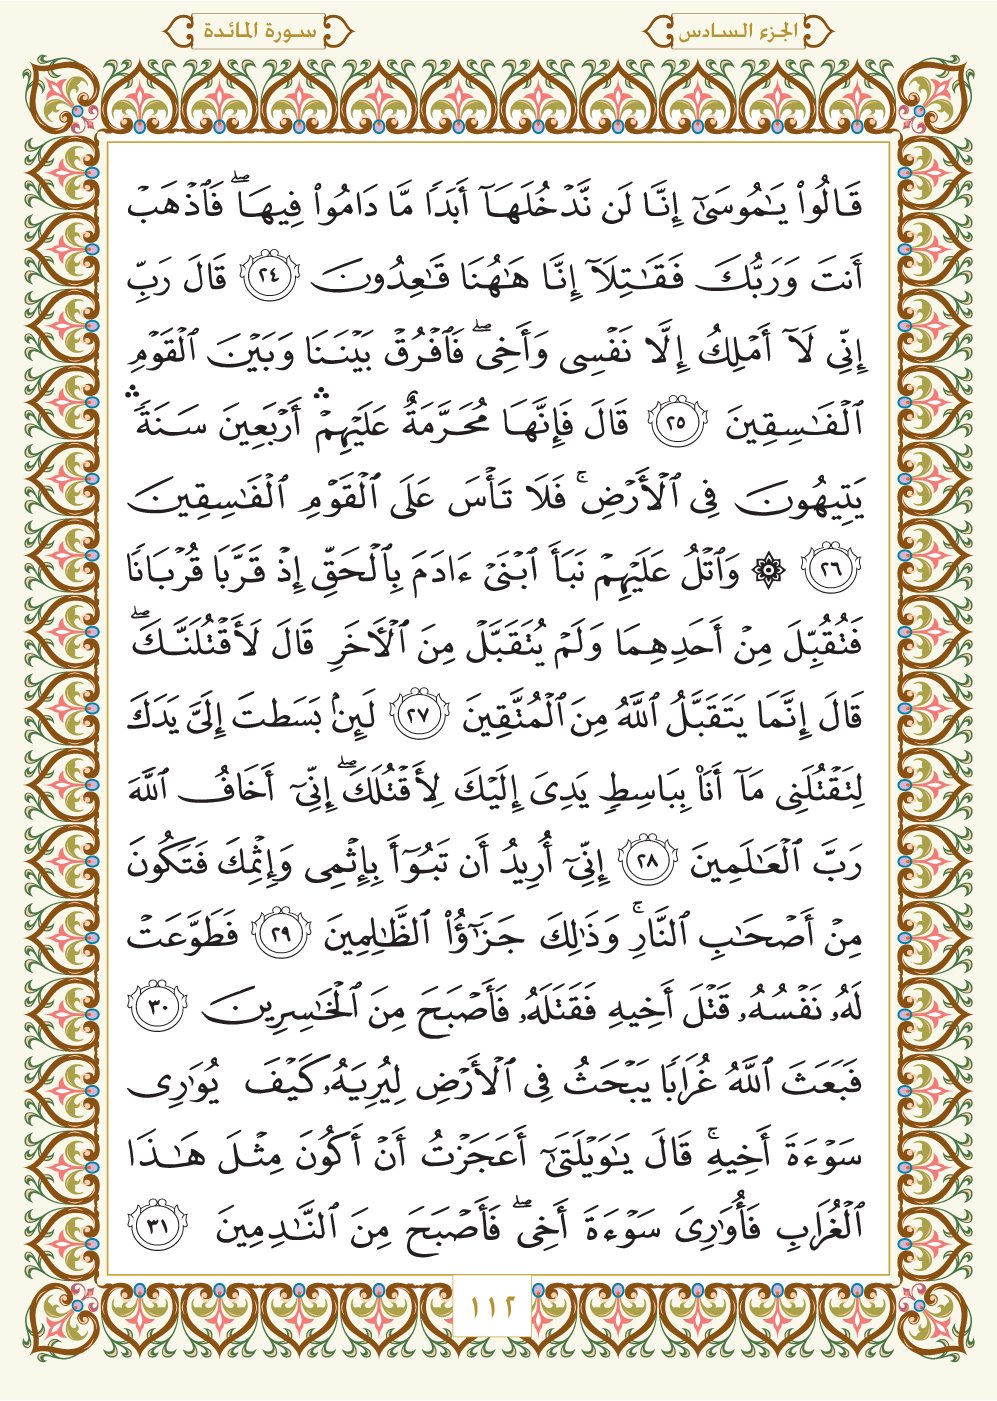 الجزء السادس
سورة المائدة
قَالُوا۟ يَـٰمُوسَىٰٓ إِنَّا لَن نَّدْخُلَهَآ أَبَدًۭا مَّا دَامُوا۟ فِيهَا ۖ فَٱذْهَبْ
أَنتَ وَرَبُّكَ فَقَـٰتِلَآ إِنَّا هَـٰهُنَا قَـٰعِدُونَ ٢٤ قَالَ رَبِّ
إِنِّى لَآ أَمْلِكُ إِلَّا نَفْسِى وَأَخِى ۖ فَٱفْرُقْ بَيْنَنَا وَبَيْنَ ٱلْقَوْمِ
ٱلْفَـٰسِقِينَ ٢٥ قَالَ فَإِنَّهَا مُحَرَّمَةٌ عَلَيْهِمْ ۛ أَرْبَعِينَ سَنَةًۭ ۛ
يَتِيهُونَ فِى ٱلْأَرْضِ ۚ فَلَا تَأْسَ عَلَى ٱلْقَوْمِ ٱلْفَـٰسِقِينَ
٢٦ ۞ وَٱتْلُ عَلَيْهِمْ نَبَأَ ٱبْنَىْ ءَادَمَ بِٱلْحَقِّ إِذْ قَرَّبَا قُرْبَانًۭا
فَتُقُبِّلَ مِنْ أَحَدِهِمَا وَلَمْ يُتَقَبَّلْ مِنَ ٱلْـَٔاخَرِ قَالَ لَأَقْتُلَنَّكَ ۖ
قَالَ إِنَّمَا يَتَقَبَّلُ ٱللَّهُ مِنَ ٱلْمُتَّقِينَ ٢٧ لَئِنۢ بَسَطتَ إِلَىَّ يَدَكَ
لِتَقْتُلَنِى مَآ أَنَا۠ بِبَاسِطٍۢ يَدِىَ إِلَيْكَ لِأَقْتُلَكَ ۖ إِنِّىٓ أَخَافُ ٱللَّهَ
رَبَّ ٱلْعَـٰلَمِينَ ٢٨ إِنِّىٓ أُرِيدُ أَن تَبُوٓأَ بِإِثْمِى وَإِثْمِكَ فَتَكُونَ
مِنْ أَصْحَـٰبِ ٱلنَّارِ ۚ وَذَٰلِكَ جَزَٰٓؤُا۟ ٱلظَّـٰلِمِينَ ٢٩ فَطَوَّعَتْ
لَهُۥ نَفْسُهُۥ قَتْلَ أَخِيهِ فَقَتَلَهُۥ فَأَصْبَحَ مِنَ ٱلْخَـٰسِرِينَ ٣٠
فَبَعَثَ ٱللَّهُ غُرَابًۭا يَبْحَثُ فِى ٱلْأَرْضِ لِيُرِيَهُۥ كَيْفَ يُوَٰرِى
سَوْءَةَ أَخِيهِ ۚ قَالَ يَـٰوَيْلَتَىٰٓ أَعَجَزْتُ أَنْ أَكُونَ مِثْلَ هَـٰذَا
ٱلْغُرَابِ فَأُوَٰرِىَ سَوْءَةَ أَخِى ۖ فَأَصْبَحَ مِنَ ٱلنَّـٰدِمِينَ ٣١
١١٢